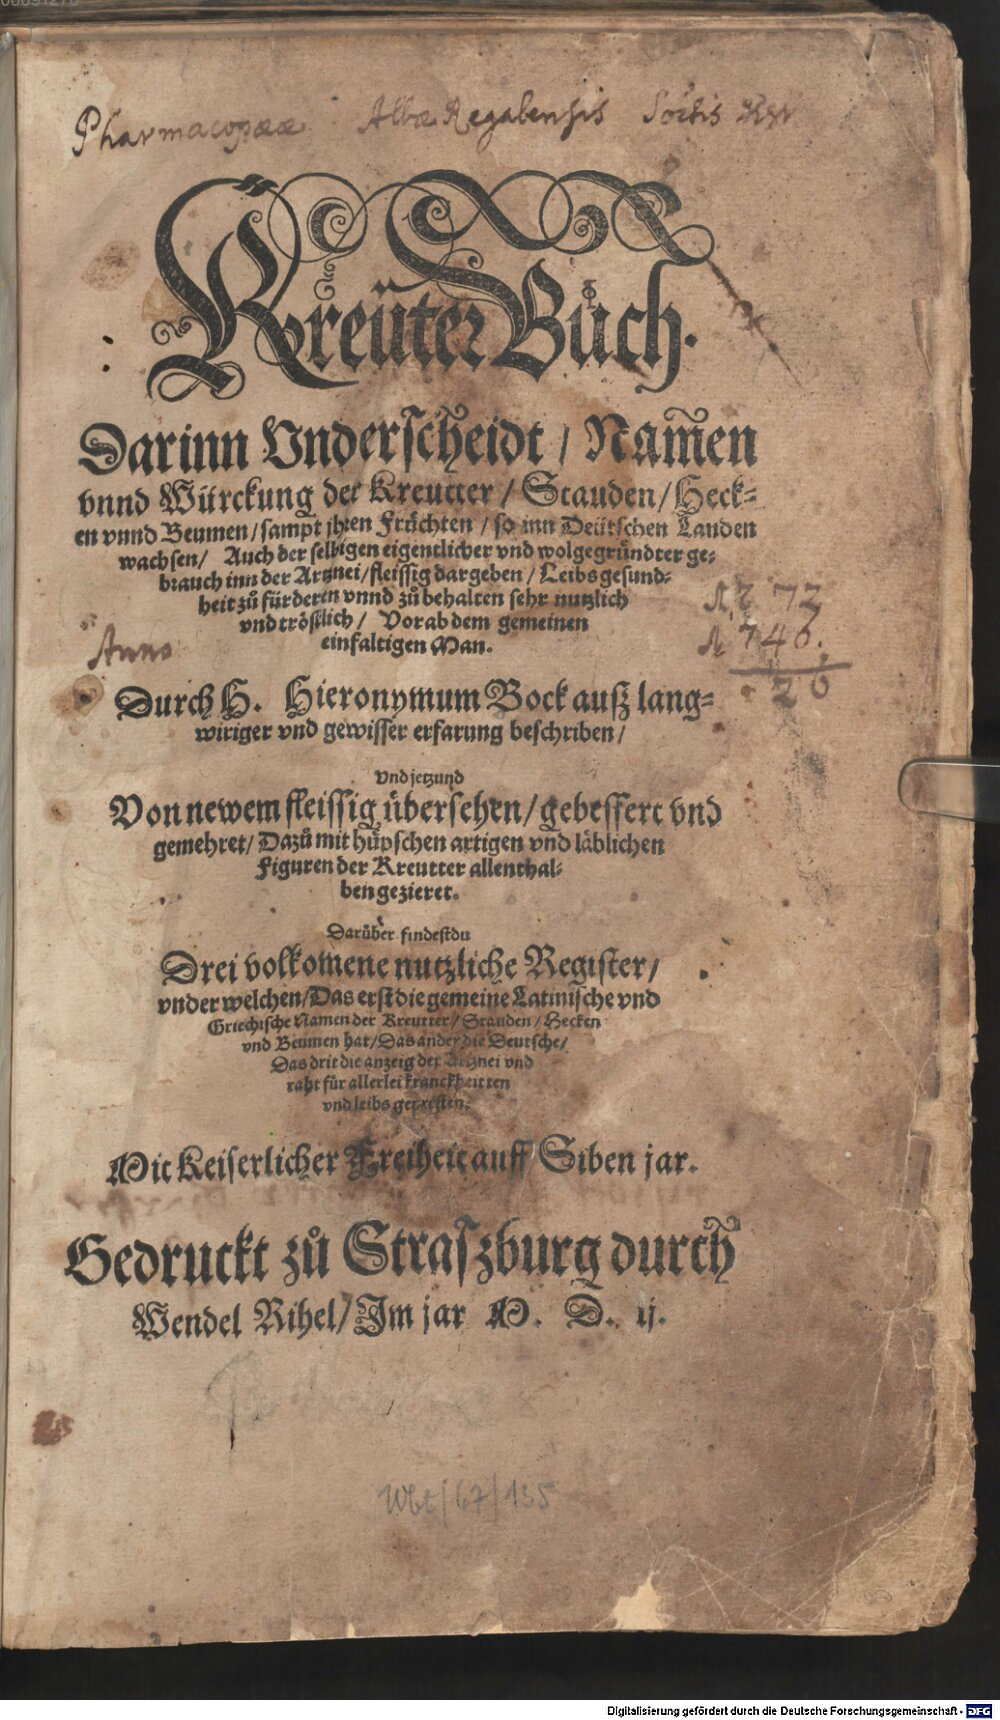 Pharmacopææ Albæ Regalensis
Kreüter Bůch.
Darinn Vnderscheidt / Namen
vnnd Würckung der Kreutter / Stauden / Heck=
en vnnd Beumen / sampt jhren Früchten / so inn Deütschen Landen
wachsen / Auch der selbigen eigentlicher vnd wolgegründter ge=
brauch inn der Artznei / fleissig dargeben / Leibs gesund=
heit zů fürderen vnnd zů behalten sehr nutzlich
vnd tröstlich / Vorab dem gemeinen
einfaltigen Man.
Anno
772
746.
26
Durch H. Hieronymum Bock ausz lang=
wiriger vnd gewisser erfarung beschriben /
Vnd jetzund
Von newem fleissig übersehen / gebessert vnd
gemehret / Dazů mit hüpschen artigen vnd läblichen
Figuren der Kreutter allenthal=
ben gezieret.
Darüber findestdu
Drei volkomene nutzliche Register /
vnder welchen / Das erst die gemeine Latinische vnd
Griechische Namen der Kreutter / Stauden / Hecken
vnd Beumen hat / Das ander die Deutsche /
Das drit die anzeig der Artznei vnd
raht für allerlei kranckheitten
vnd leibs gepresten.
Mit Keiserlicher Freiheit auff Siben jar.
Gedruckt zů Straszburg durch
Wendel Rihel / Im jar M. D. lj.
Wbt/67/135
Digitalisierung gefördert durch die Deutsche Forschungsgemeinschaft - DFG